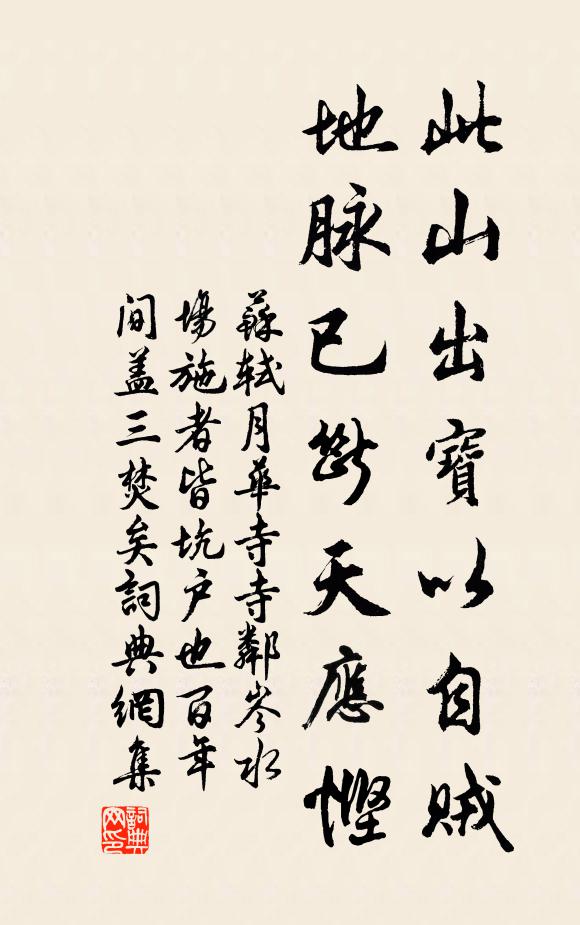 此山出寶以自賊
地脉已斷天應慳
蘇軾月華寺寺鄰岑水
場施者皆坑户也百年
間盖三焚矣詞典網集
詞典网印